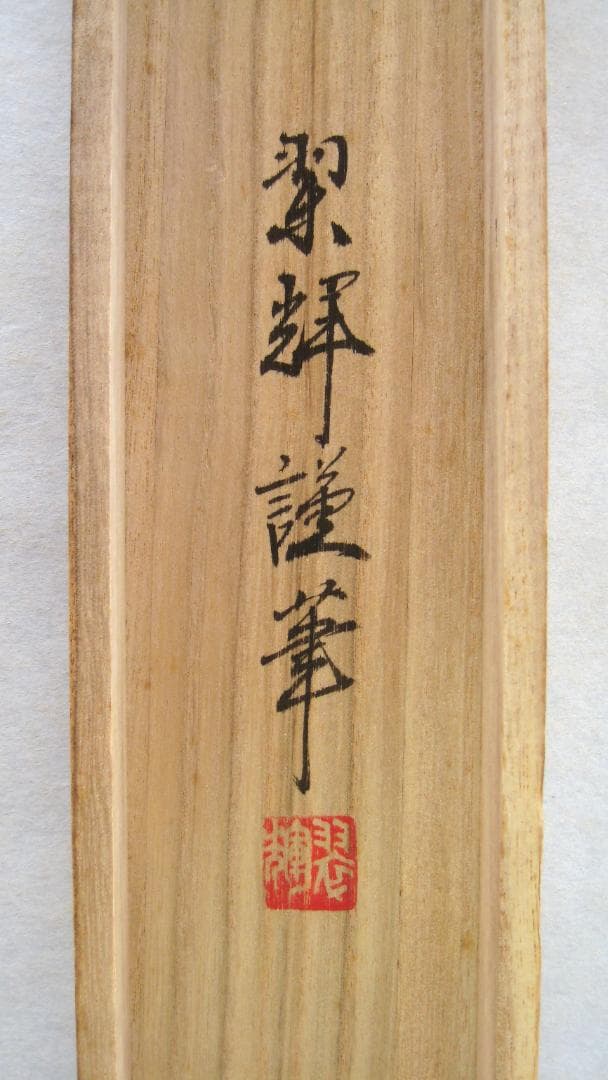 翠輝謹筆
翠輝